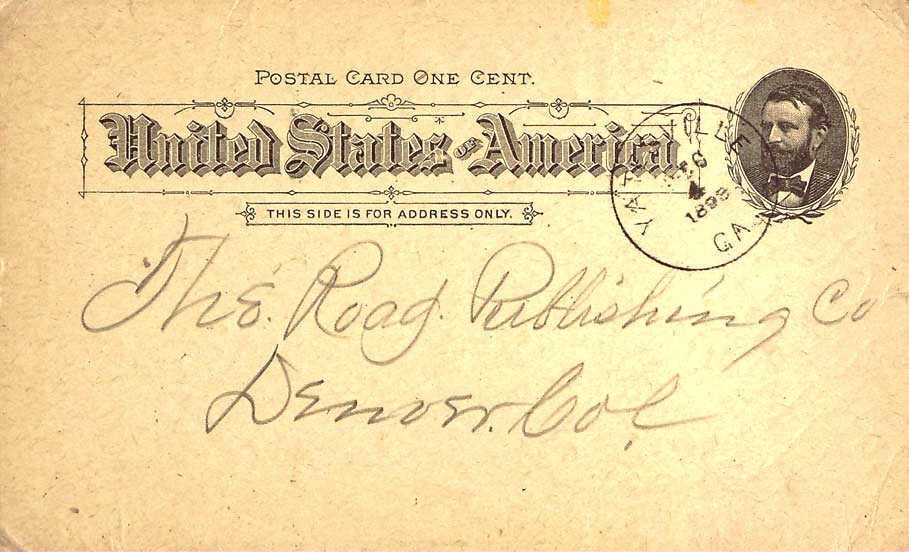 POSTAL CARD ONE CENT.
United States of America
THIS SIDE IS FOR ADDRESS ONLY.
YATESVILLE
4
GA
The. Road Publishing Co
Denver. Col.